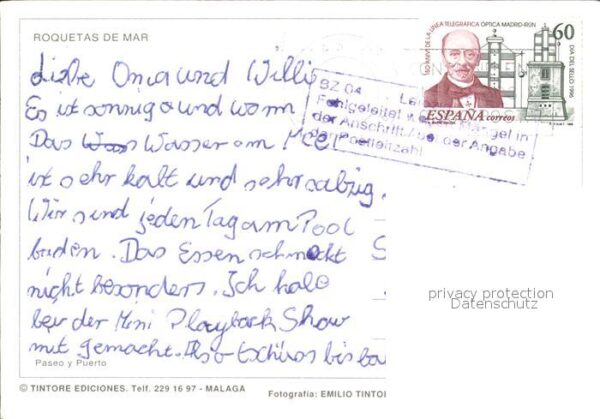 ROQUETAS DE MAR
Liebe Oma und Willi
Es ist sonnig und warm
Das Was Wasser am Meer
ist sehr kalt und sehr salzig.
Wir sind jeden Tag am Pool
baden. Das Essen schmekt
nicht besonders. Ich habe
bei der Mini Playback Show
mit gemacht. Also tschüss bis ba
Paseo y Puerto
© TINTORE EDICIONES. Telf. 229 16 97 - MALAGA
Fotografía: EMILIO TINTO
150 ANIV DE LA LINEA TELEGRÁFICA ÓPTICA MADRID-IRÚN
60
DIA DEL SELLO 1996
ESPAÑA correos
BZ 04
Fehlgeleitet wegen Mangel in
der Anschrift / bei der Angabe
der Postleitzahl
privacy protection
Datenschutz